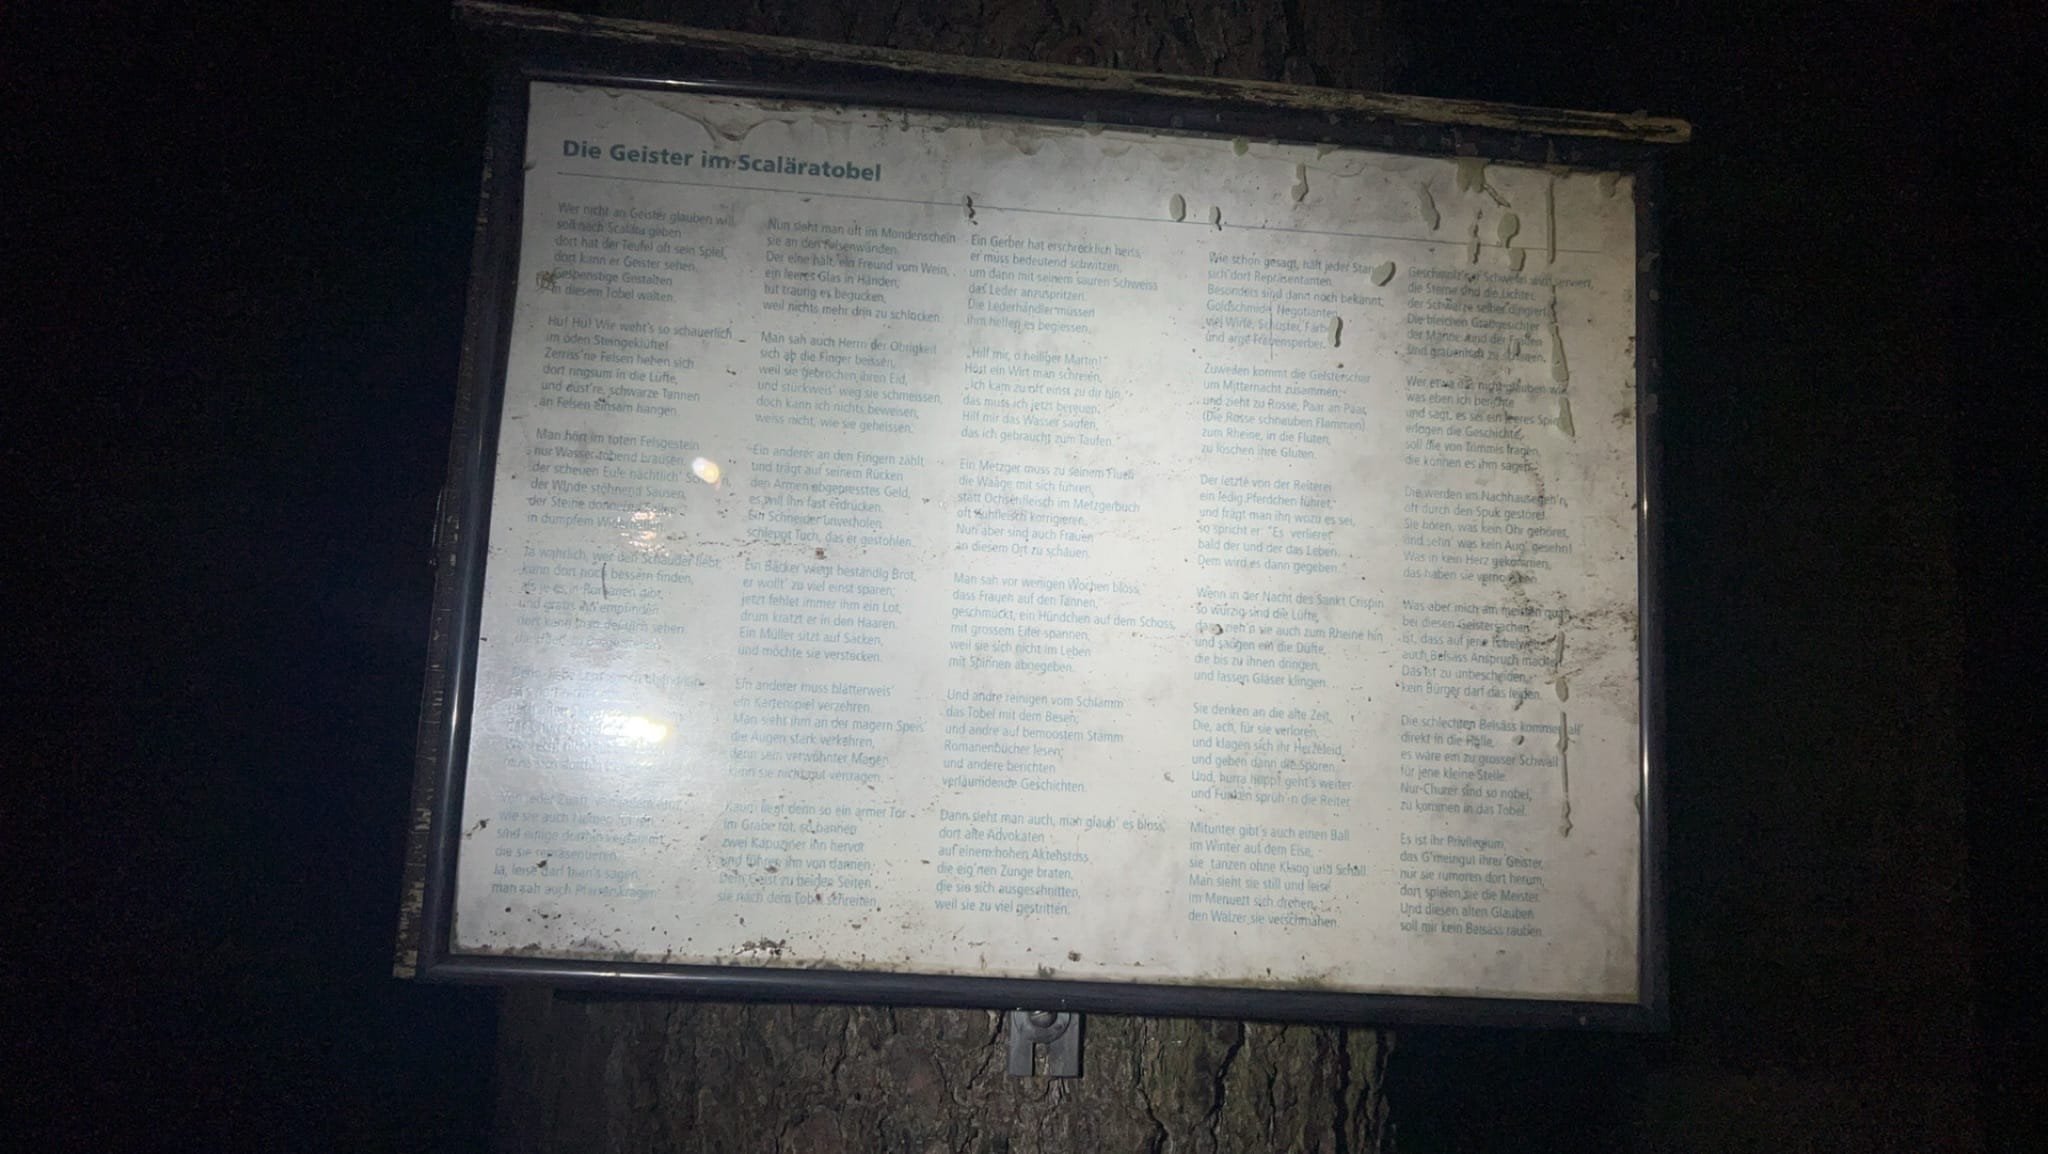 Die Geister im Scaläratobel
Wer nicht an Geister glauben will
soll nach Scalära gehen
dort hat der Teufel oft sein Spiel,
dort kann er Geister sehen.
Gespenstige Gestalten
in diesem Tobel walten.
Hu! Hu! Wie weht's so schauerlich
im öden Steingeklüfte!
Zerriss'ne Felsen heben sich
dort ringsum in die Lüfte,
und düst're, schwarze Tannen
an Felsen einsam hangen.
Man hört im toten Felsgestein
nur Wasser tobend brausen,
der scheuen Eule nächtlich'
der Winde stöhnend Sausen,
der Steine
in dumpfem
Ja wahrlich, wer den Schauder liebt,
kann dort noch bessern finden,
als je es in Romanen gibt,
und gratis ihn empfinden
dort kann man deutlich sehen
Von jeder Zunft, von jedem
wie sie auch Namen führen,
sind einige dorthin
die sie repräsentieren.
Ja, leise darf man's sagen,
man sah auch Pfaffenkragen.
Nun sieht man oft im Mondenschein
sie an den Felsenwänden.
Der eine hält, ein Freund vom Wein,
ein leeres Glas in Händen;
tut traurig es begucken,
weil nichts mehr drin zu schlocken.
Man sah auch Herrn der Obrigkeit
sich ab die Finger beissen,
weil sie gebrochen ihren Eid,
und stückweis' weg sie schmeissen,
doch kann ich nichts beweisen,
weiss nicht, wie sie geheissen.
Ein anderer an den Fingern zählt
und trägt auf seinem Rücken
den Armen abgepresstes Geld,
es will ihn fast erdrücken.
Ein Schneider unverholen
schleppt Tuch, das er gestohlen.
Ein Bäcker wiegt beständig Brot,
er wollt' zu viel einst sparen;
jetzt fehlet immer ihm ein Lot,
drum kratzt er in den Haaren.
Ein Müller sitzt auf Säcken,
und möchte sie verstecken.
Ein anderer muss blätterweis'
ein Kartenspiel verzehren.
Man sieht ihn an der magern Speis'
die Augen stark verkehren,
denn sein verwöhnter Magen
kann sie nicht gut vertragen.
Kaum liegt denn so ein armer Tor
im Grabe tot, so bannen
zwei Kapuziner ihn hervor
und führen ihn von dannen.
Dem Geist zu beiden Seiten
sie nach dem Tobel schreiten.
Ein Gerber hat erschrecklich heiss,
er muss bedeutend schwitzen,
um dann mit seinem sauren Schweiss
das Leder anzuspritzen.
Die Lederhändler müssen
ihm helfen es begiessen.
„Hilf mir, o heiliger Martin!"
Hört ein Wirt man schreien,
„Ich kam zu oft einst zu dir hin,
das muss ich jetzt bereuen.
Hilf mir das Wasser saufen,
das ich gebraucht zum Taufen."
Ein Metzger muss zu seinem Fluch
die Waage mit sich führen,
statt Ochsenfleisch im Metzgerbuch
oft Kuhfleisch korrigieren.
Nun aber sind auch Frauen
an diesem Ort zu schauen.
Man sah vor wenigen Wochen bloss,
dass Frauen auf den Tannen,
geschmückt, ein Hündchen auf dem Schoss,
mit grossem Eifer spannen,
weil sie sich nicht im Leben
mit Spinnen abgegeben.
Und andre reinigen vom Schlamm
das Tobel mit dem Besen;
und andre auf bemoostem Stamm
Romanenbücher lesen;
und andere berichten
verläumdende Geschichten.
Dann sieht man auch, man glaub' es bloss,
dort alte Advokaten
auf einem hohen Aktenstoss
die eig'nen Zunge braten,
die sie sich ausgeschnitten,
weil sie zu viel gestritten.
Wie schon gesagt, hält jeder Stand
sich dort Repräsentanten.
Besonders sind dann noch bekannt:
Goldschmide, Negotianten,
viel Wirte, Schuster, Färber
und arge Frauensperber.
Zuweilen kommt die Geisterschar
um Mitternacht zusammen,
und zieht zu Rosse, Paar an Paar,
(Die Rosse schnauben Flammen)
zum Rheine, in die Fluten,
zu löschen ihre Gluten.
Der letzte von der Reiterei
ein ledig Pferdchen führet,
und frägt man ihn wozu es sei,
so spricht er: "Es verlieret
bald der und der das Leben.
Dem wird es dann gegeben."
Wenn in der Nacht des Sankt Crispin
so würzig sind die Lüfte,
dann zieh'n sie auch zum Rheine hin
und saugen ein die Düfte,
die bis zu ihnen dringen,
und lassen Gläser klingen.
Sie denken an die alte Zeit,
Die, ach, für sie verloren,
und klagen sich ihr Herzeleid,
und geben dann die Sporen.
Und, hurra hopp! geht's weiter
und Funken sprüh'n die Reiter.
Mitunter gibt's auch einen Ball
im Winter auf dem Eise,
sie tanzen ohne Klang und Schall.
Man sieht sie still und leise
im Menuett sich drehen,
den Walzer sie verschmähen.
Geschmolz'ner Schwefel wird serviert,
die Sterne sind die Lichter,
der Schwarze selber dirigiert.
Die bleichen Grabgesichter
der Männer und der Frauen
sind grauenhaft zu schauen.
Wer etwa das nicht glauben will,
was eben ich berichte
und sagt, es sei ein leeres Spiel
erlogen die Geschichte,
soll die von Trimmis fragen,
die können es ihm sagen.
Die werden im Nachhausegeh'n,
oft durch den Spuk gestöret.
Sie hören, was kein Ohr gehöret,
und sehn' was kein Aug' gesehn!
Was in kein Herz gekommen,
das haben sie vernommen.
Was aber mich am meisten quält
bei diesen Geistersachen
ist, dass auf jene
auch Belsäss Anspruch machen.
Das ist zu unbescheiden,
kein Bürger darf das leiden.
Die schlechten Belsäss kommen all'
direkt in die Hölle,
es wäre ein zu grosser Schwall
für jene kleine Stelle.
Nur Churer sind so nobel,
zu kommen in das Tobel.
Es ist ihr Privilegium,
das G'meingut ihrer Geister,
nur sie rumoren dort herum,
dort spielen sie die Meister.
Und diesen alten Glauben
soll mir kein Belsäss rauben.